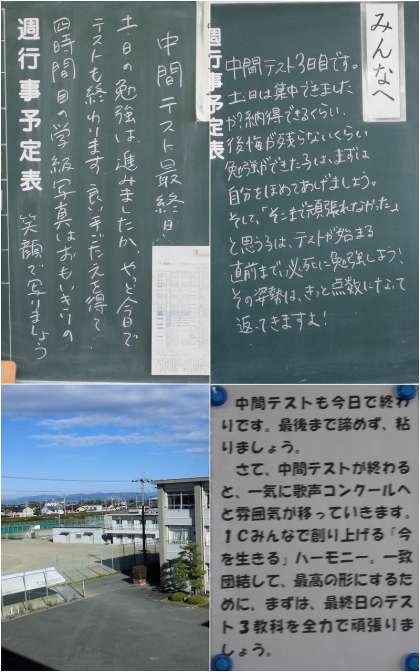 中間テスト最終日!
土・日の勉強は進みましたか。やっと今日で
テストも終わります。良い手ごたえを得て、
四時間目の学級写真はおもいきりの
笑顔で写りましょう
週行事予定表
みんなへ
週行事予定表
中間テスト3日目です。
土、日は集中できました
か?納得できるくらい、
後悔が残らないくらい
勉強ができたら、まずは
自分をほめてあげましょう。
そして、「そこまで頑張れなかった」
と思うろは、テストが始まる
直前まで、必死に勉強しよう!
その姿勢は、きっと点数になって
返ってきますよ!
中間テストも今日で終わ
りです。最後まで諦めず、粘
りましょう。
さて、中間テストが終わる
と、一気に歌声コンクールへ
と雰囲気が移っていきます。
1Cみんなで創り上げる「今
を生きる」ハーモニー。一致
団結して、最高の形にするた
めに、まずは、最終日のテス
ト3教科を全力で頑張りま
しょう。